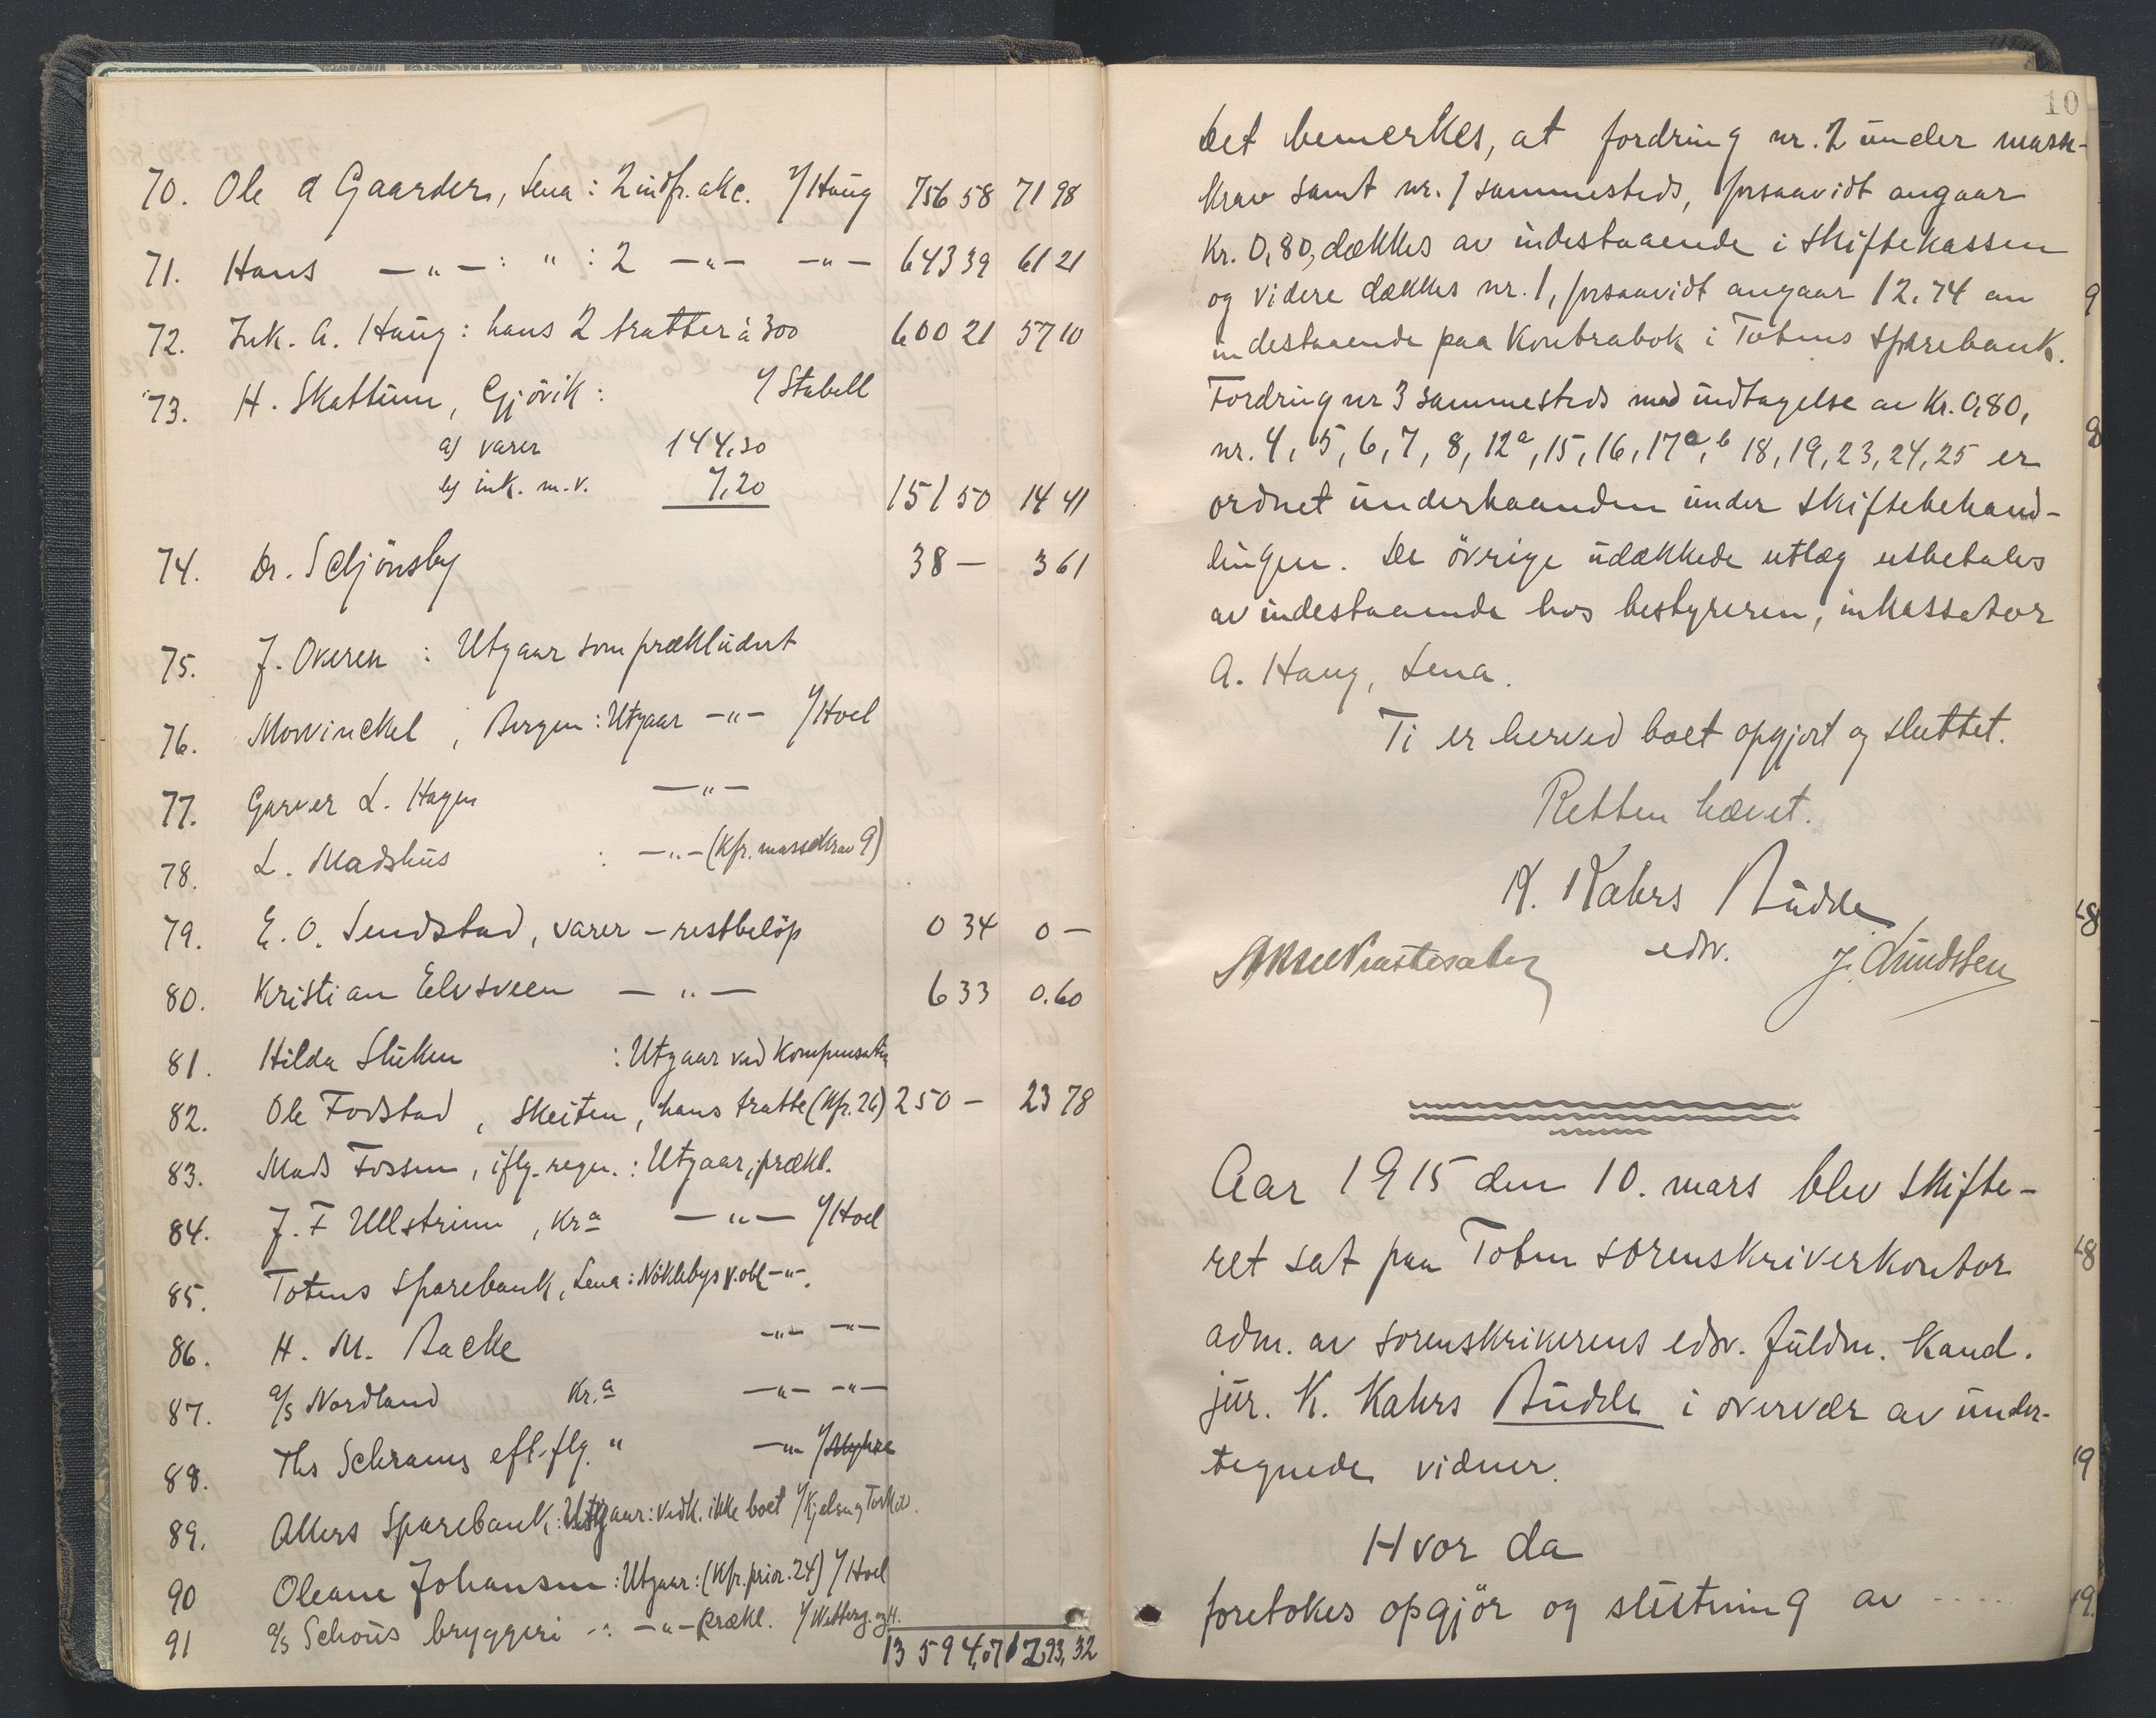 70. Ole d Gaarder, Lena : 2 indfr. akc. v/ Haug 756 58 71 98
71. Hans —„— : „ : 2 —„— —„— 643 39 61 21
72. Ink. A. Haug : hans 2 tratter à 300 600 21 57 10
73. H. Skattum, Gjövik : v/ Stabell
a) varer 144,30
b) ink. m.v. 7,20 151 50 14 41
74. Dr. Schjönsby 38 — 3 61
75. J. Overen : Utgaar som prækludert
76. Mowinckel, Bergen : Utgaar —„— v/ Hoel
77. Garver L. Hagen —„—
78. L. Madshus : —„— (Kfr. massekrav 9)
79. E. O. Sendstad, varer – restbelöp 0 34 0 —
80. Kristian Elvsveen —„— 6 33 0.60
81. Hilda Stuken : Utgaar ved Kompensation
82. Ole Fodstad, Skeiten, hans tratte (Kfr. 26) 250 — 23 78
83. Mads Fossen, iflg. regn. : Utgaar, prækl.
84. J. F Ullstrinn, Kra —„— v/ Hoel
85. Totens Sparebank, Lena : Nöklebys v. obl —„—.
86. H. M. Backe —„— —„—
87. a/s Nordland Kr.a —„— —„—
88. Ths Schrams eft. flg. „ —„— v/ Myhre
89. Akers Sparebank : Utgaar : vedk. ikke boet v/ Kjelsen og
90 Oleane Johansen : Utgaar : (Kfr. prior. 24) v/ Hoel
91 a/s Schous bryggeri —„— prækl. v/
13 594,07 1293,32
10
Det bemerkes, at fordring nr. 2 under masse-
krav samt nr. 1 sammesteds, forsaavidt angaar
Kr. 0,80, dækkes av indestaaende i skiftekassen
og videre dækkes nr. 1, forsaavidt angaar 12,74 av
indestaaende paa Kontrabok i Totens Sparebank.
Fordring nr 3 sammesteds med undtagelse av Kr. 0,80,
nr. 4, 5, 6, 7, 8, 12a, 15, 16, 17a, b 18, 19, 23, 24, 25 er
ordnet underhaanden under skiftebehand-
lingen. De övrige udækkede utlæg utbetales
av indestaaende hos bestyreren, inkassator
A. Haug, Lena.
Ti er herved boet opgjort og sluttet.
Retten hævet.
K. Kahrs Budde
edsv. J. Lundsten
Aar 1915 den 10. mars blev skifte-
ret sat paa Toten sorenskriverkontor
adm. av sorenskriverens edsv. fuldm. Kand.
jur. K. Kahrs Budde i overvær av under-
tegnede vidner.
Hvor da
foretokes opgjör og slutning av ....